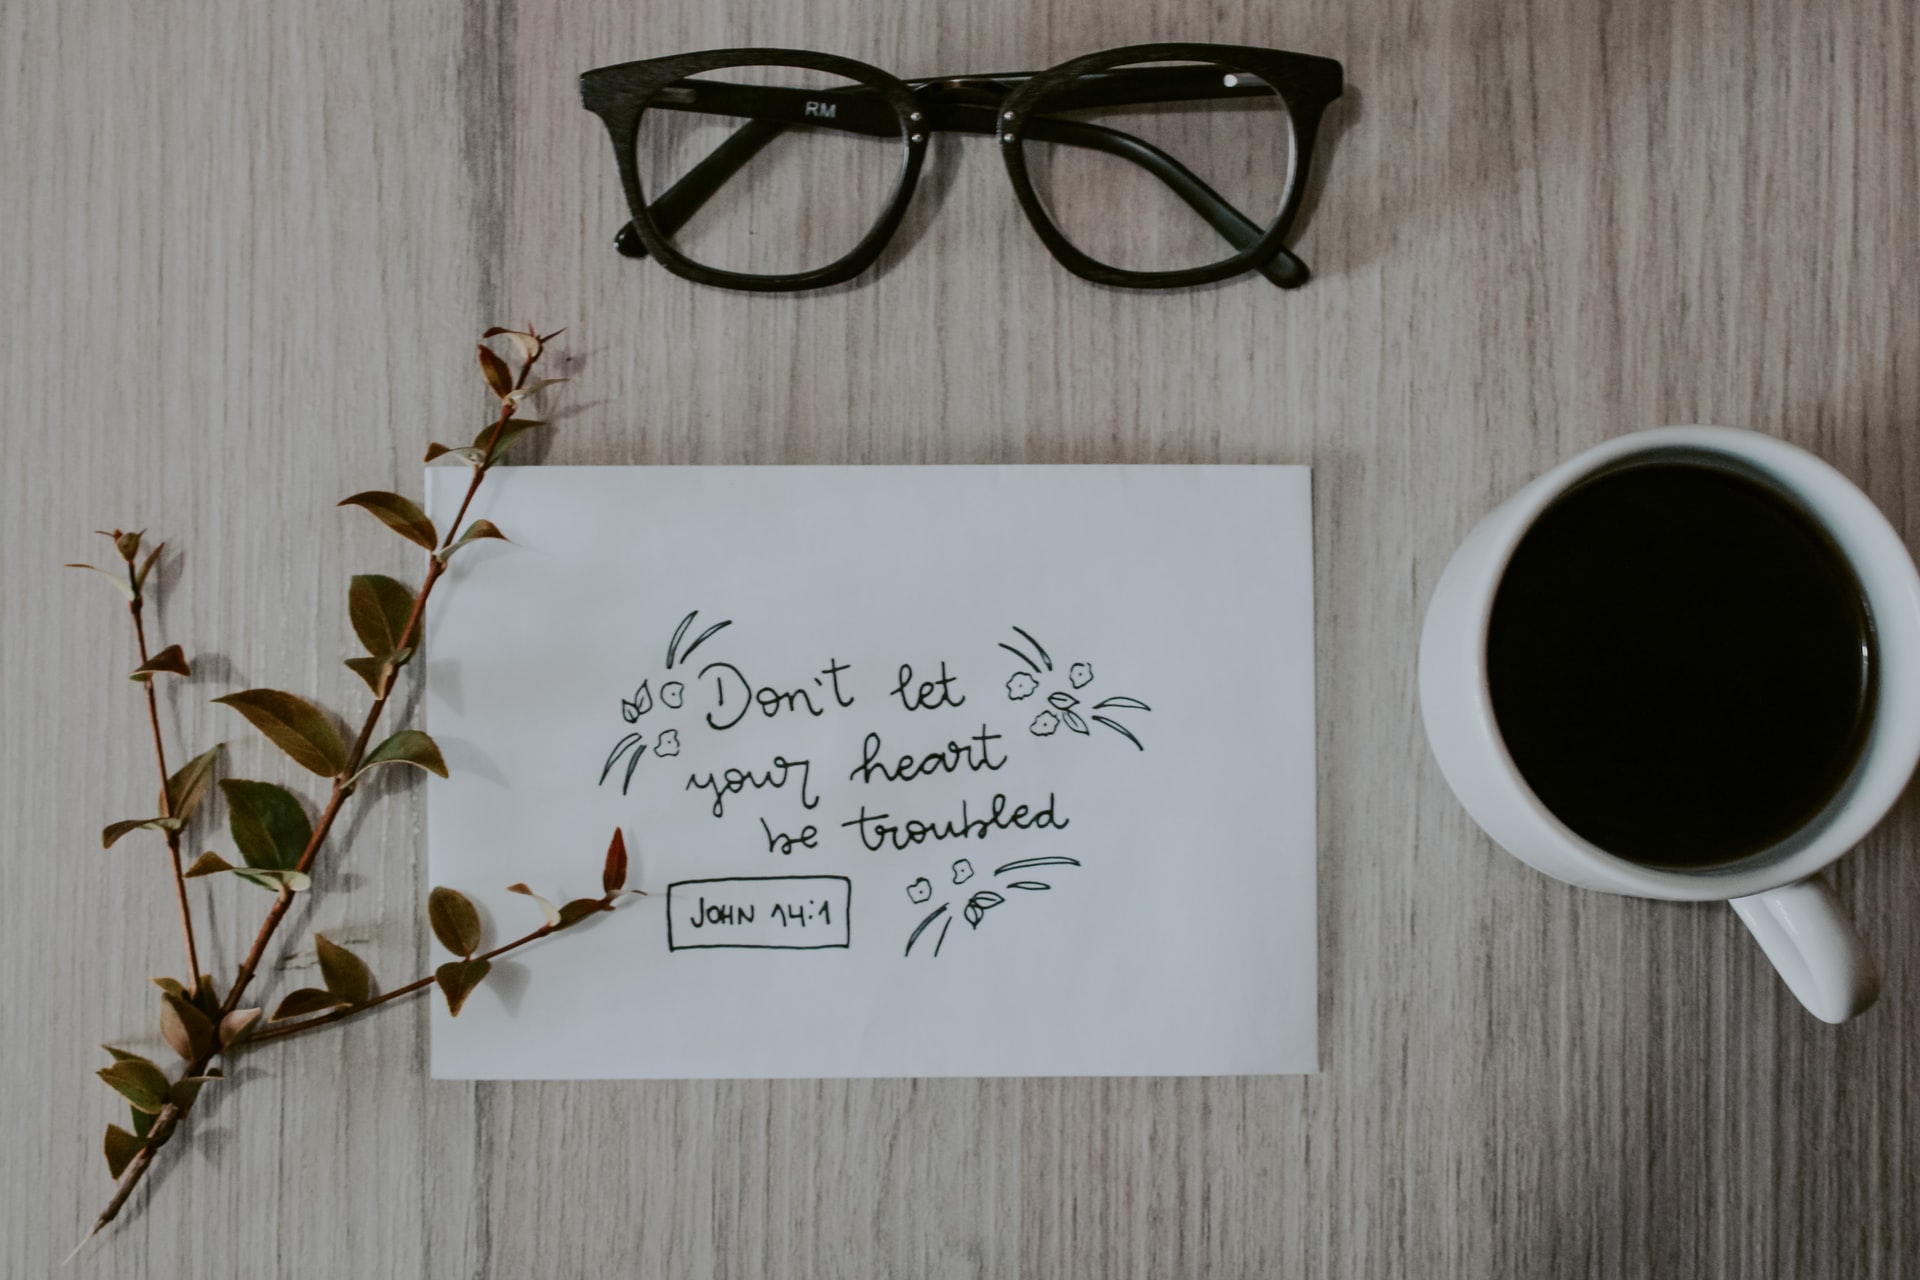 RM
Don't let
your heart
be troubled
JOHN 14:1